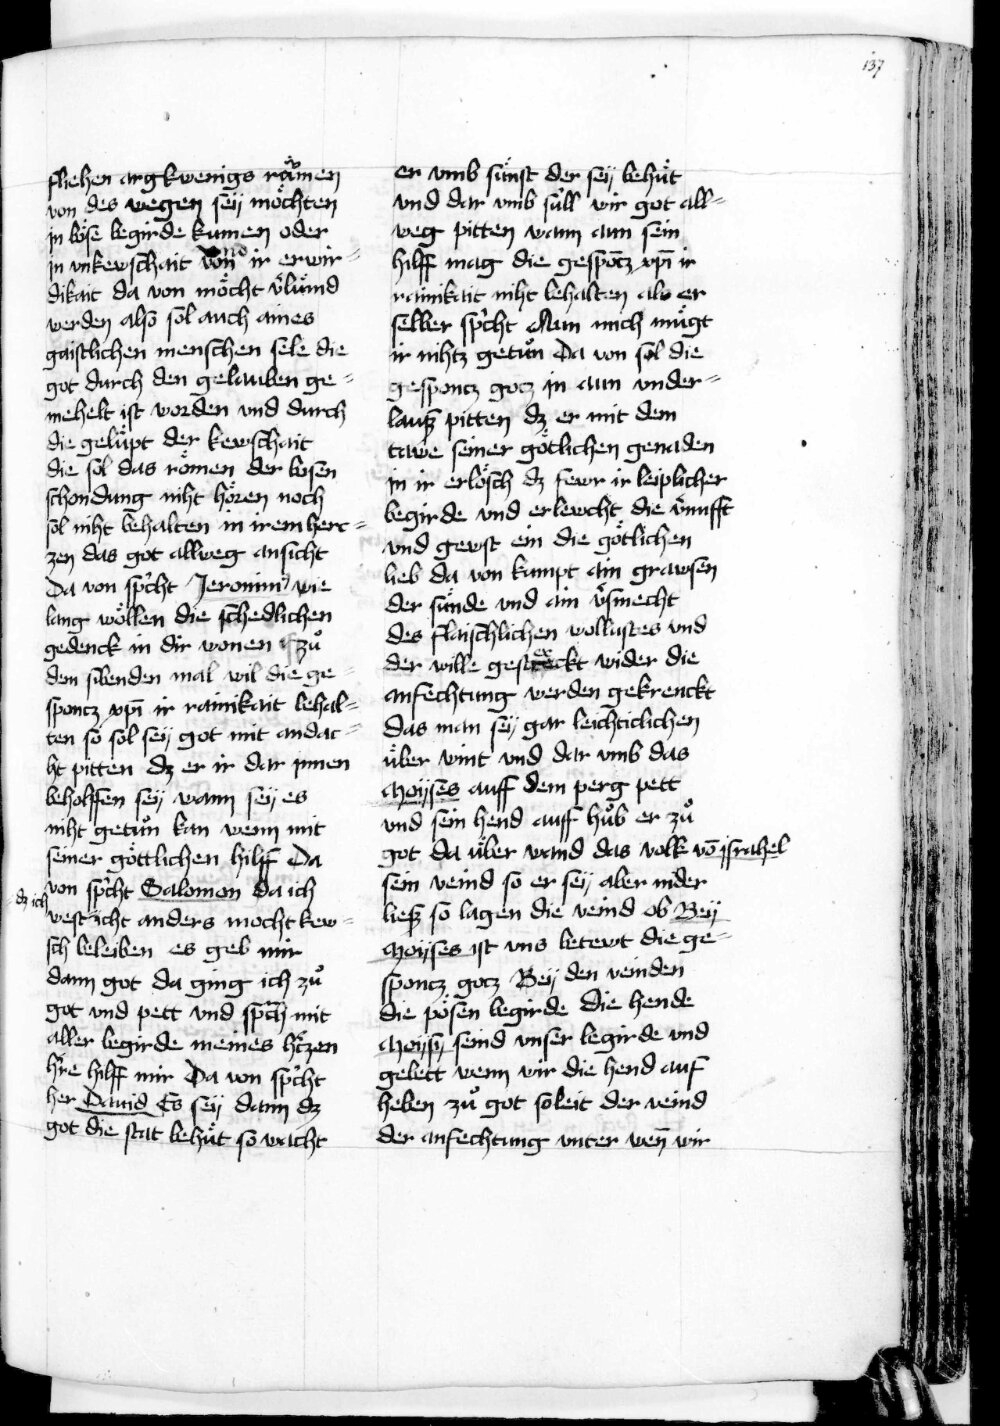 137
fliehen argkwenigs raͧmen
von des wegen seÿ möchten
jn böse begirde kumen oder
jn vnkewschait vnd ir erwir=
dikait da von möcht v̉lümd
werden also sol auch aines
gaistlichen menschen sele die
got durch den gelauben ge=
mehelt ist worden vnd durch
die gelüpt der kewschait
die sol das römen der bosen
schondung niht hören noch
sol niht behalten in irem hercz=
zen das got allweg ansicht
Da von sp̉cht Jeronimꝰ wie
lang wöllen die schedlichen
gedenck in dir wonen zuͦ
dem sibenden mal wil die ge=
sponcz xp̄i ir rainikait behal=
ten so sol seÿ got mit andac=
ht pitten dz er ir dar jnnen
beholffen seÿ wann seÿ es
niht getuͦn kan wenn mit
seiner göttlichen hilff Da
von sp̉cht Salomon da ich
dz ich
west nicht anders mocht kew=
sch beleiben es geb mir
dann got da ging ich zuͦ
got vnd pett vnd sp̉ch mit
aller begirde meines h̉czen
h̉re hilff mir Da von sp̉cht
her Dauid Es seÿ dann dz
got die stat behüt so wacht
er vmb sünst der seÿ behüt
vnd dar vmb süll wir got all=
weg pitten wann aun sein
hilff mag die gesponcz xp̄i ir
rainikait niht behalten als er
selber sp̉cht Aun mich mügt
ir nihtz getuͦn Da von sol die
gesponcz gocz in aun vnder=
lausz pitten dz er mit dem
tawe seiner götlichen genaden
jn ir erlösch dz fewr ir leiplicher
begirde vnd erlewcht die v̉nufft
vnd gewst ein die götlichen
lieb da von kumpt ain grawsen
der sünde vnd ain v̉smecht
des flaischlichen wollustes vnd
der wille gesterckt wider die
anfechtung werden gekrenckt
das man seÿ gar leichticlichen
über wint vnd dar vmb das
Moÿses auff dem perg pett
vnd sein hend auff huͦb er zuͦ
got da über wand das volk vō jsrahel
sein veind so er seÿ aber nider
liesz so lagen die veind ob Beÿ
Moÿses ist vns betewt die ge=
sponcz gocz Beÿ den veinden
die pösen begirde Die hende
Moÿsÿ seind vnser begirde vnd
gebett wenn wir die hend auf
heben zuͦ got so leit der veind
der anfechtung vnter wen̄ wir